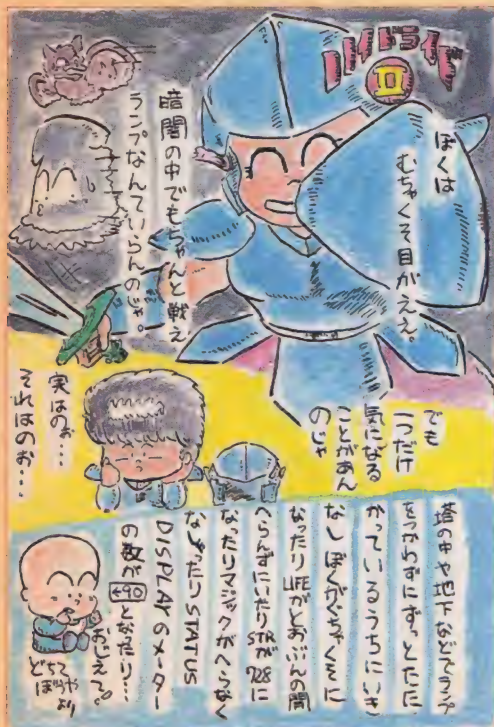 ハイドライド
II
ぼくは
むちゃくそ目がええ。
暗闇の中でもちゃんと戦え
ランプなんていらんのじゃ。
でも
一つだけ
気になる
ことがあん
のじゃ
実はのぉ…
それはのぉ…
塔の中や地下などでランプ
をつかわずにずっとたた
かっているうちにいき
なしぼくがぐちゃくそに
なったりLIFEがとおぶんの間
へらんずにいたりSTRが728に
なったりマジックがへらなく
なしゃったりSTATUS
DISPLAYのメーター
の数が←90となったり…
おしえて。
どちて
ぼうやより